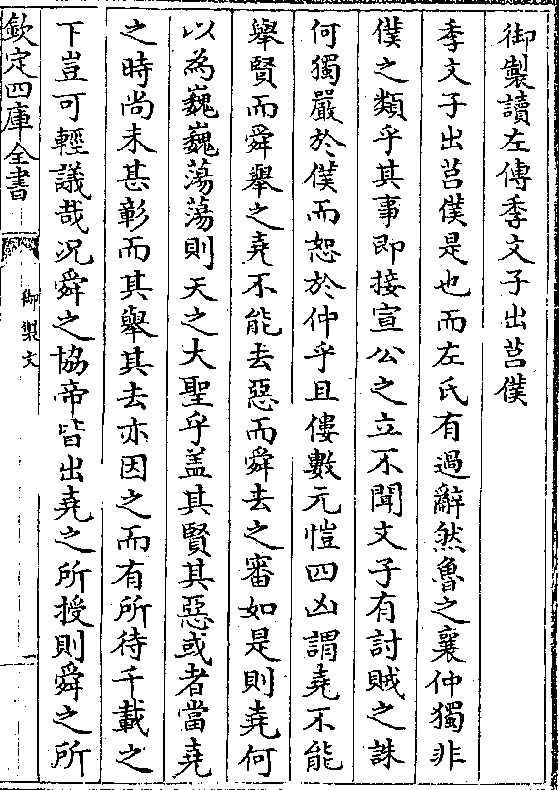 御製讀左傳季文子出莒僕
季文子出莒僕是也而左氏有過辭然魯之襄仲獨非
僕之類乎其事即接宣公之立不聞文子有討賊之誅
何獨嚴於僕而恕於仲乎且僂數元愷四凶謂堯不能
舉賢而舜舉之堯不能去惡而舜去之審如是則堯何
以為巍巍蕩蕩則天之大聖乎盖其賢其惡或者當堯
之時尚未甚彰而其舉其去亦因之而有所待千載之
下豈可輕議哉况舜之協帝皆出堯之所授則舜之所
欽定四庫全書
御製文
一